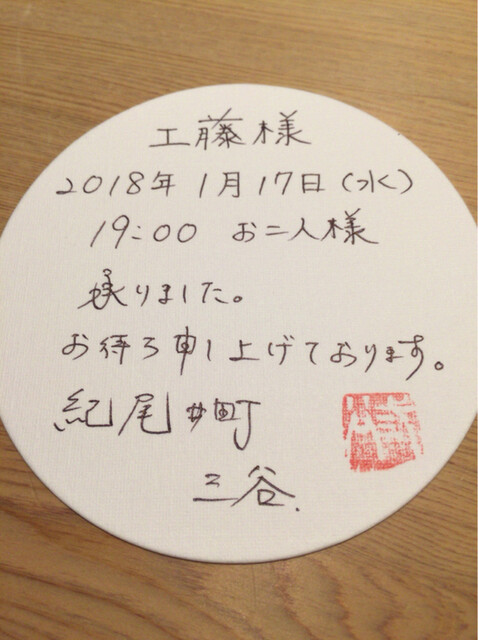 工藤様
2018年1月17日(水)
19:00 お二人様
承りました。
お待ち申し上げております。
紀尾井町
三谷.